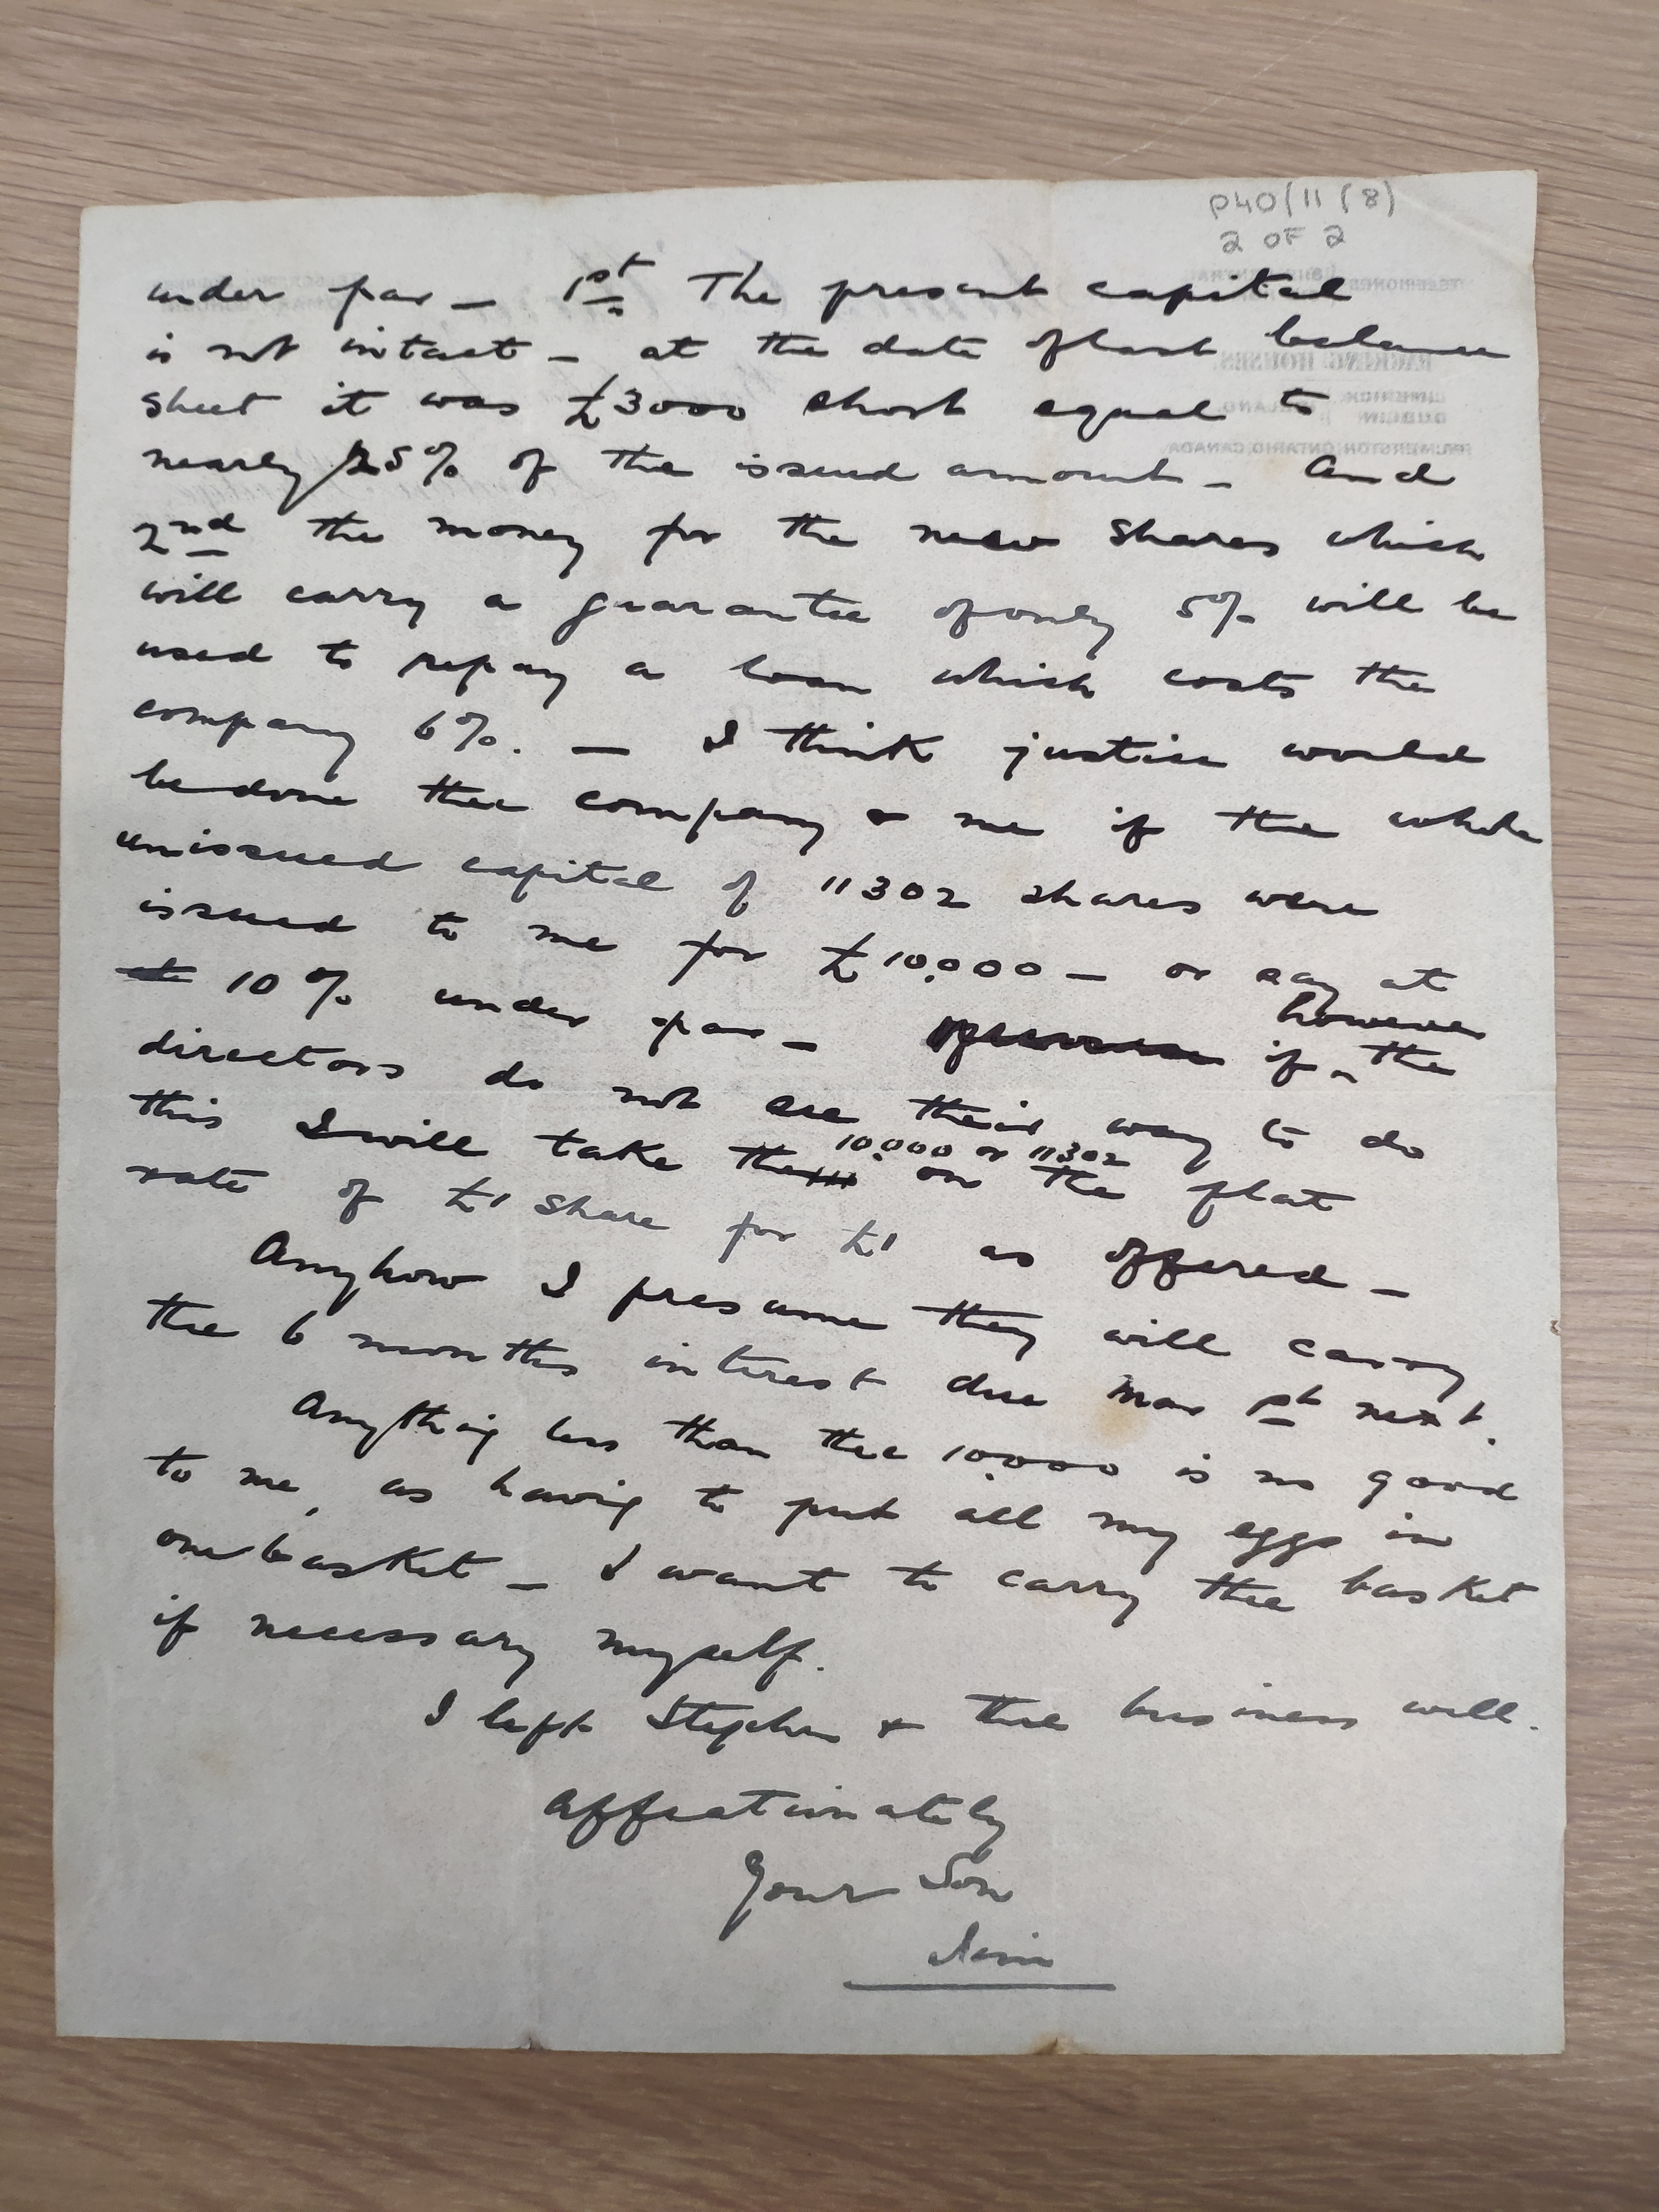 P40/11 (8)
2 OF 2
under par – 1st The present capital
is not intact – at the date of last balance
sheet it was £3000 short equal to
nearly 25% of the issued amount – And
2nd the money for the new shares which
will carry a guarantee of only 5% will be
used to repay a loan which costs the
company 6%. – I think justice would
be done the company & me if the whole
unissued capital of 11302 shares were
issued to me for £10,000 – or say at
10% under par – if however the
directors do not see their way to do
this I will take the 10,000 or 11302 on the flat
rate of £1 share for £1 as offered –
Anyhow I presume they will carry
the 6 months interest due Mar 1st next.
Anything less than the 10,000 is no good
to me, as having to put all my eggs in
one basket – I want to carry the basket
if necessary myself.
I left Stephen & the business well.
Affectionately
Your Son
TELEPHONES
PACKING HOUSES.
LIMERICK
DUBLIN
IRELAND
PALMERSTON, ONTARIO, CANADA.